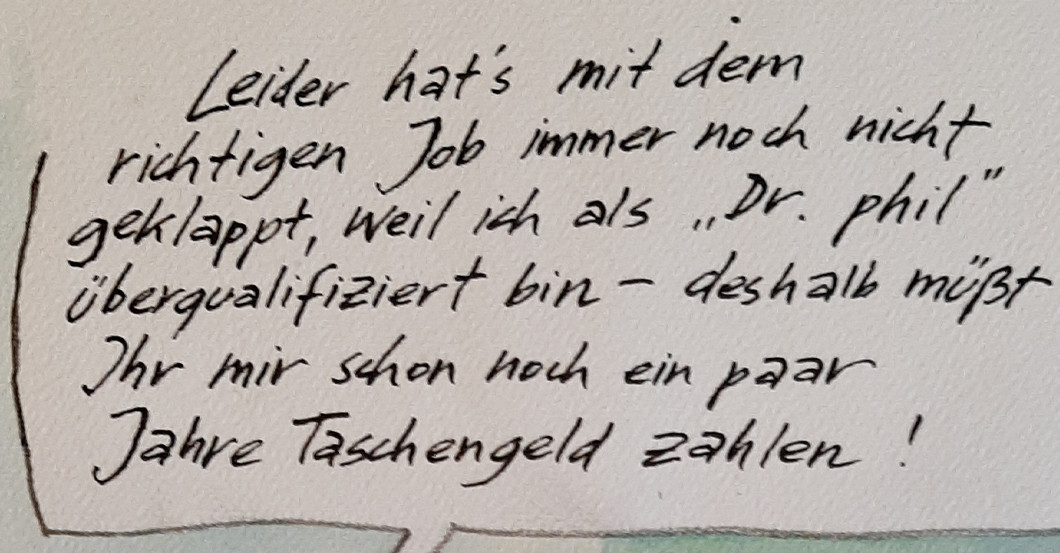 Leider hat's mit dem
richtigen Job immer noch nicht
geklappt, weil ich als „Dr. phil"
überqualifiziert bin – deshalb müßt
Ihr mir schon noch ein paar
Jahre Taschengeld zahlen !